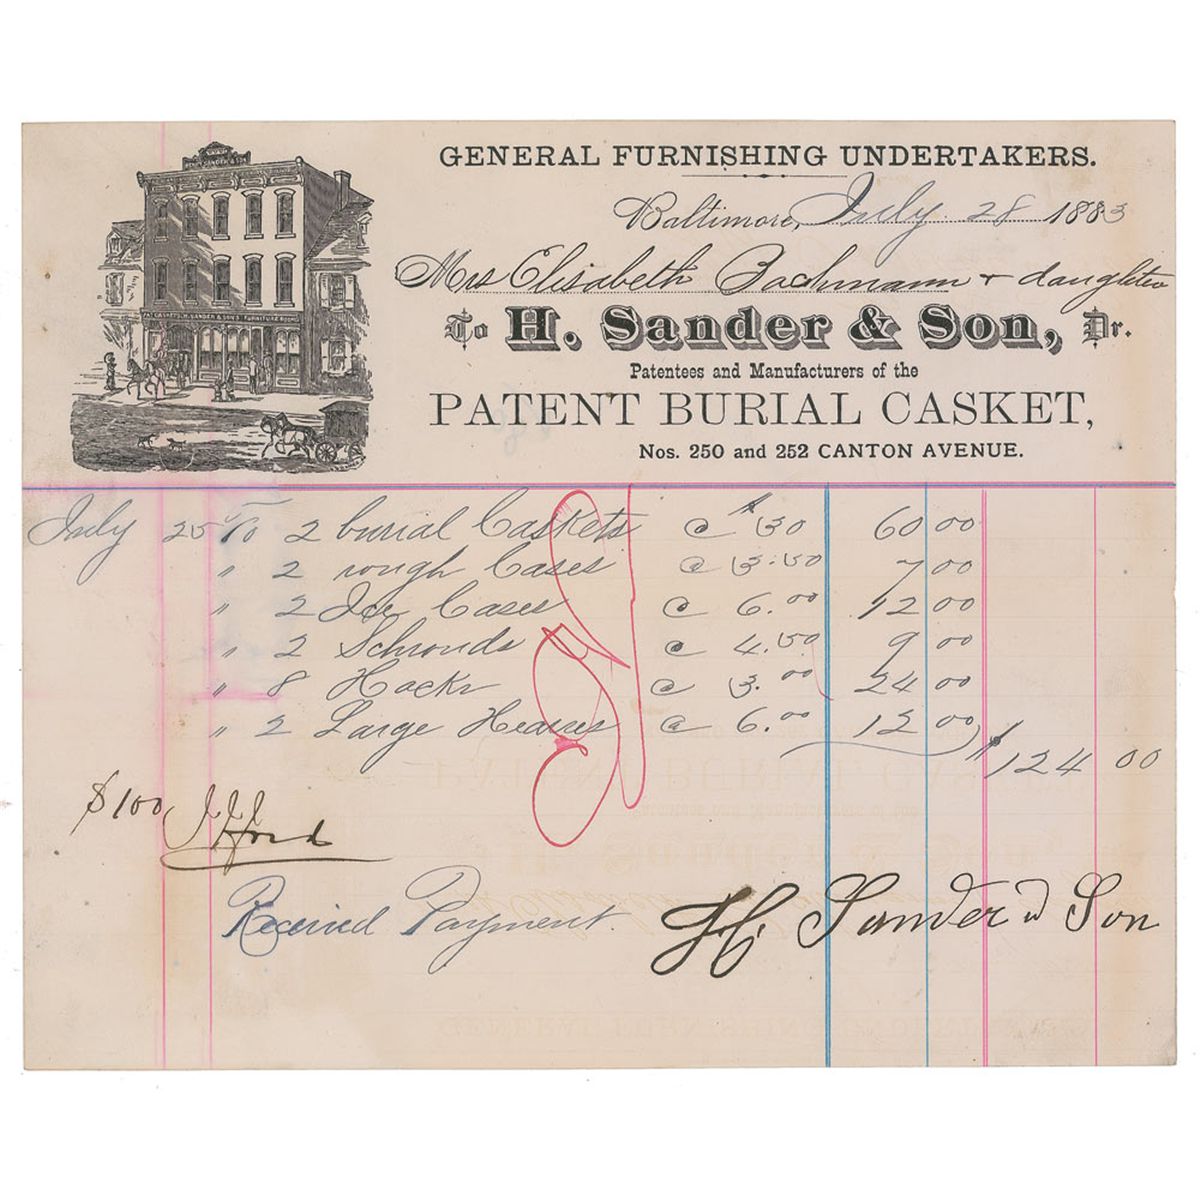 HENRY SANDER & SON
GENERAL FURNISHING UNDERTAKERS.
Baltimore, July 28 1883
Mrs Elisabeth Bachmann & daughter
To H. Sander & Son, Dr.
Patentees and Manufacturers of the
PATENT BURIAL CASKET,
Nos. 250 and 252 CANTON AVENUE.
July 25 To 2 burial Caskets @ $30 60 00
" 2 rough Cases @ 3.50 7 00
" 2 Ice Cases @ 6.00 12 00
" 2 Schrouds @ 4.50 9 00
" 8 Hacks @ 3.00 24 00
" 2 Large Hearses @ 6.00 12 00
$124 00
$100
Received Payment.
H. Sander & Son